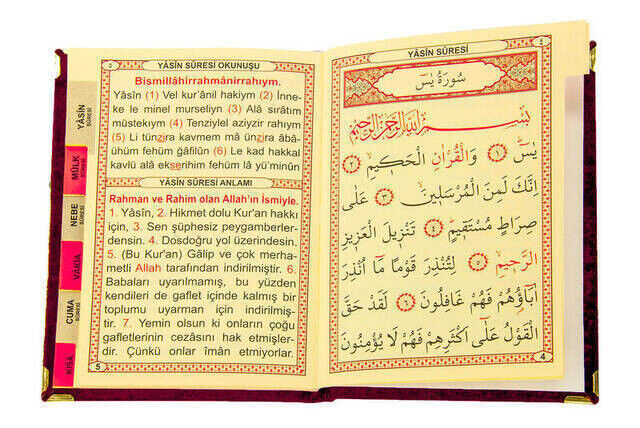 YÂSİN SÛRESİ
MÜLK
SÛRESİ
NEBE
SÛRESİ
VÂKIA
CUMA
SÛRESİ
KISA
٥
YÂSİN SÛRESİ OKUNUŞU
Bismillâhirrahmânirrahıym.
Yâsîn (1) Vel kur'ânil hakiym (2) İnne-
ke le minel murseliyn (3) Alâ sırâtım
müstekıym (4) Tenziylel aziyzir rahıym
(5) Li tünzira kavmem mâ unzira âbâ-
ühüm fehüm ğâfilûn (6) Le kad hakkal
kavlü alâ ekserihim fehüm lâ yü'minûn
YÂSİN SÛRESİ ANLAMI
Rahman ve Rahim olan Allah'ın İsmiyle.
1. Yâsîn, 2. Hikmet dolu Kur'an hakkı
için, 3. Sen şüphesiz peygamberler-
densin. 4. Dosdoğru yol üzerindesin.
5. (Bu Kur'an) Gâlip ve çok merha-
metli Allah tarafından indirilmiştir. 6.
Babaları uyarılmamış, bu yüzden
kendileri de gaflet içinde kalmış bir
toplumu uyarman için indirilmiş-
tir. 7. Yemin olsun ki onların çoğu
gafletlerinin cezasını hak etmişler-
dir. Çünkü onlar îmân etmiyorlar.
5
YÂSİN SÛRESİ
٤
سُورَةُ يٰسٓ
بِسْمِ اللّٰهِ الرَّحْمٰنِ الرَّحِيمِ
يٰسٓ ﴿١﴾ وَالْقُرْاٰنِ الْحَكِيمِ ﴿٢﴾
اِنَّكَ لَمِنَ الْمُرْسَلِينَ ﴿٣﴾ عَلٰى
صِرَاطٍ مُسْتَقِيمٍ ﴿٤﴾ تَنْزِيلَ الْعَزِيزِ
الرَّحِيمِ ﴿٥﴾ لِتُنْذِرَ قَوْمًا مَٓا اُنْذِرَ
اٰبَٓاؤُ۬هُمْ فَهُمْ غَافِلُونَ ﴿٦﴾ لَقَدْ حَقَّ
الْقَوْلُ عَلٰٓى اَكْثَرِهِمْ فَهُمْ لَا يُؤْمِنُونَ
4